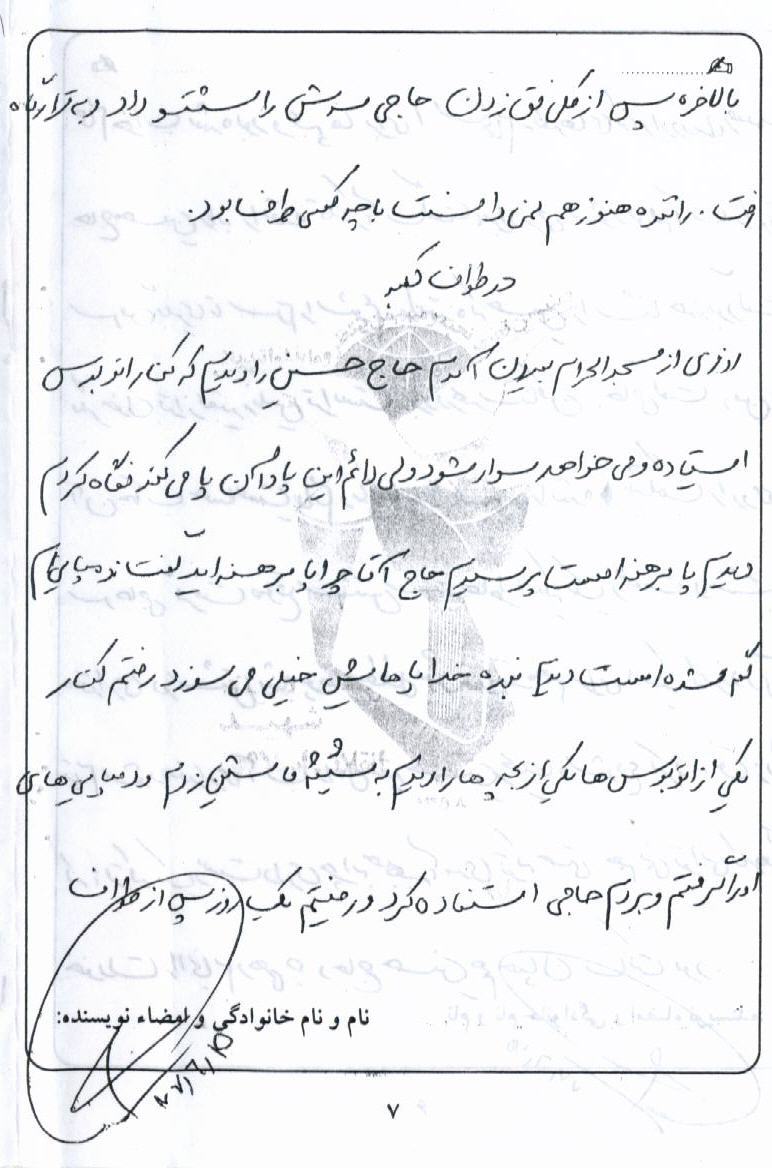 بالاخره پس از کلی نق زدن حاجی سرش را شستشو داد و به قرارگاه
رفت. راننده هنوز هم نمی دانست با چه کسی طرف بود.
در طواف کعبه
روزی از مسجدالحرام بیرون آمدم حاج حسین را دیدم که کنار اتوبوس
ایستاده و می خواهد سوار شود ولی دائم این پا و آن پا می کند نگاه کردم
دیدم پا برهنه است پرسیدم حاج آقا چرا پا برهنه اید گفت دمپایی ام
گم شده است دیدم بنده خدا پاهایش خیلی می سوزد رفتم کنار
یکی از اتوبوس ها یکی از بچه ها را دیدم به شیشه ماشین زدم و دمپایی های
او را گرفتم و بردم حاجی استفاده کرد و رفتیم یک روز پس از طواف
نام و نام خانوادگی و امضاء نویسنده:
۷